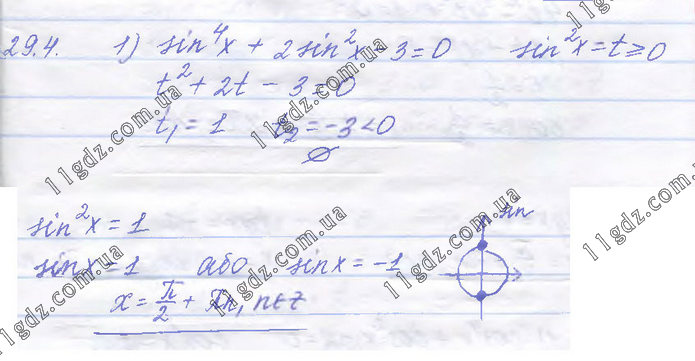 29.4. 1) sin⁴x + 2sin²x - 3 = 0 sin²x = t ≥ 0
t² + 2t - 3 = 0
t₁ = 1 t₂ = -3 < 0
∅
sin²x = 1
sinx = 1 або sinx = -1
x = π/2 + πn, n∈Z
sin
11gdz.com.ua
11gdz.com.ua
11gdz.com.ua
11gdz.com.ua
11gdz.com.ua
11gdz.com.ua
11gdz.com.ua
11gdz.com.ua